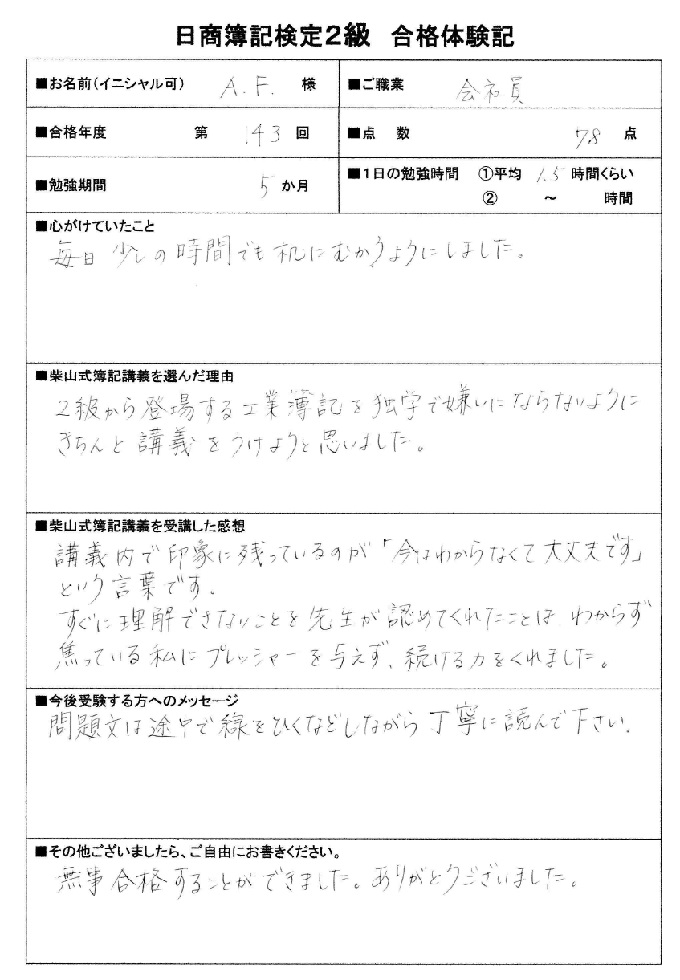 日商簿記検定2級 合格体験記
■お名前(イニシャル可) A.F. 様 ■ご職業 会社員
■合格年度 第 143 回 ■点数 78 点
■勉強期間 5 か月 ■1日の勉強時間 ①平均 1.5 時間くらい
② ～ 時間
■心がけていたこと
毎日少しの時間でも机にむかうようにしました。
■柴山式簿記講義を選んだ理由
2級から登場する工業簿記を独学で嫌いにならないように
きちんと講義をうけようと思いました。
■柴山式簿記講義を受講した感想
講義内で印象に残っているのが「今はわからなくて大丈夫です」
という言葉です。
すぐに理解できないことを先生が認めてくれたことは、わからず
焦っている私にプレッシャーを与えず、続ける力をくれました。
■今後受験する方へのメッセージ
問題文は途中で線をひくなどしながら丁寧に読んで下さい。
■その他ございましたら、ご自由にお書きください。
無事合格することができました。ありがとうございました。